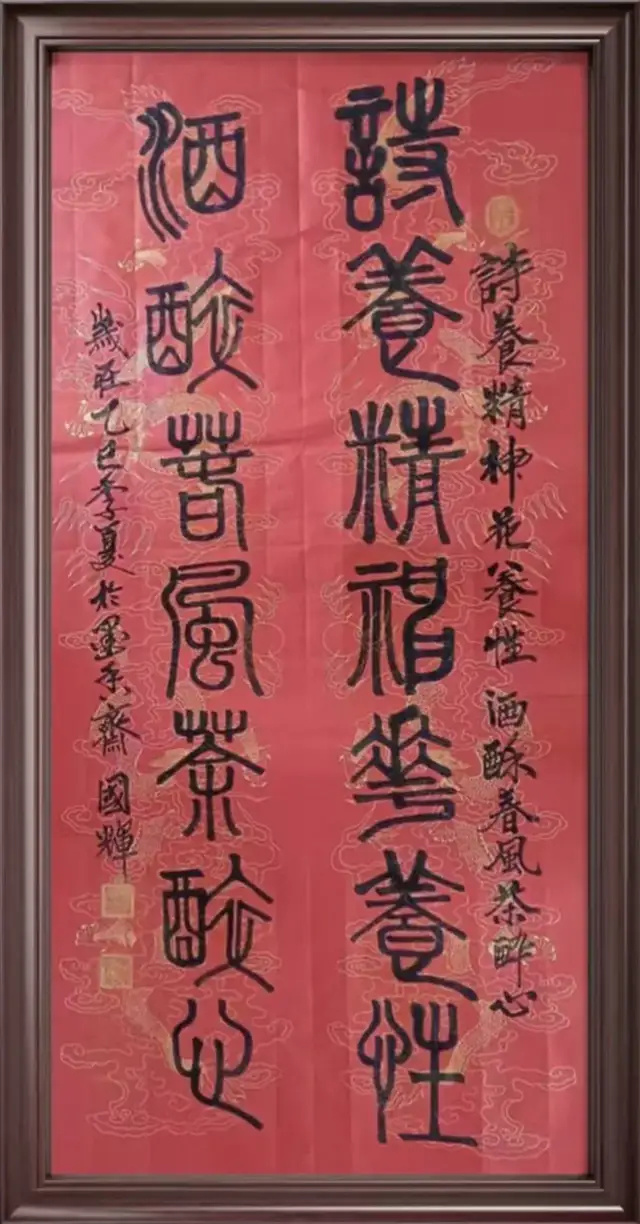 詩養精神花養性酒酥春風茶酔心
詩養精神華養性
酒醉春風茶醉心
歲在乙巳季夏於墨香齋國輝